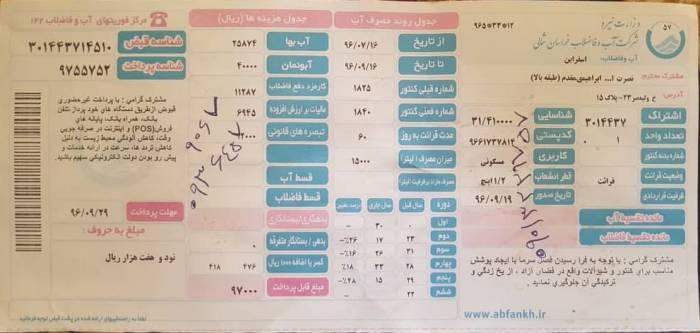 ۹۶۵*۳۳*۱۲
وزارت نیرو
شرکت آب و فاضلاب خراسان شمالی
آب وفاضلاب: اسفراین
۵۷
مشترک محترم: نصرت ا... ابراهیمی‌مقدم (طبقه بالا)
آدرس: خ ولیعصر ۲۳-پلاک ۱۵
اشتراک ۳۰۱۴۴۳۷ شناسایی ۳۱/۴۱۰۰۰۰
تعداد واحد ۱ ۰ کدپستی ۹۶۶۱۷۳۷۸۱۳
شماره بدنه کنتور کاربری مسکونی
وضعیت قرائت قرائت قطر انشعاب ۱/۲اینچ
ظرفیت قراردادی تاریخ صدور ۹۶/۰۹/۱۹
مانده تقسیط آب
مانده تقسیط فاضلاب
مشترک گرامی : با توجه به فرا رسیدن فصل سرما با ایجاد پوشش
مناسب برای کنتور و شیرآلات واقع در فضای آزاد ، از یخ زدگی و
ترکیدگی آن جلوگیری نمایید .
www.abfankh.ir
جدول روند مصرف آب
از تاریخ ۹۶/۰۷/۱۶
تا تاریخ ۹۶/۰۹/۱۶
شماره قبلی کنتور ۱۸۲۵
شماره فعلی کنتور ۱۸۴۰
مدت قرائت به روز ۶۰
میزان مصرف (لیتر) ۱۵۰۰۰
مصرف مازاد بر ظرفیت (لیتر)
دوره سال قبل سال جاری درصد تغییر
اول ۰ ۳۰
دوم ۲۳ ۱۷ ۲۶٪-
سوم ۳۱ ۲۶ ۱۶٪-
چهارم ۲۸ ۳۳ ۱۸٪
پنجم ۲۹ ۱۵ ۴۸٪-
ششم ۲۲
جدول هزینه ها (ریال)
آب بها ۲۵۸۷۴
آبونمان ۴۰۰۰۰
کارمزد دفع فاضلاب ۱۱۲۸۷
مالیات بر ارزش افزوده ۶۹۴۵
تبصره های قانونی
قسط آب
قسط فاضلاب
بدهکاری/بستانکاری
بدهی / بستانکار متفرقه
کسر یا اضافه ۱۰۰۰ ریال ۴۷۶ ۴۱۸
مبلغ قابل پرداخت ۹۷۰۰۰
مرکز فوریتهای آب و فاضلاب ۱۲۲
شناسه قبض ۳۰۱۴۴۳۷۱۴۵۱۰
شناسه پرداخت ۹۷۵۵۷۵۲
مشترک گرامی : با پرداخت غیرحضوری
قبوض (ازطریق دستگاه های خود پرداز،تلفن
بانک، همراه بانک، پایانه های
فروش(POS) و اینترنت در صرفه جویی
وقت، کاهش آلودگی محیط زیست به دلیل
کاهش تردد ها، سرعت در ارائه خدمات و
پیش رو بودن دولت الکترونیکی سهیم باشید.
مهلت پرداخت ۹۶/۰۹/۲۹
مبلغ به حروف :
نود و هفت هزار ریال
لطفا به راهنماییهای ارائه شده در پشت قبض توجه فرمائید